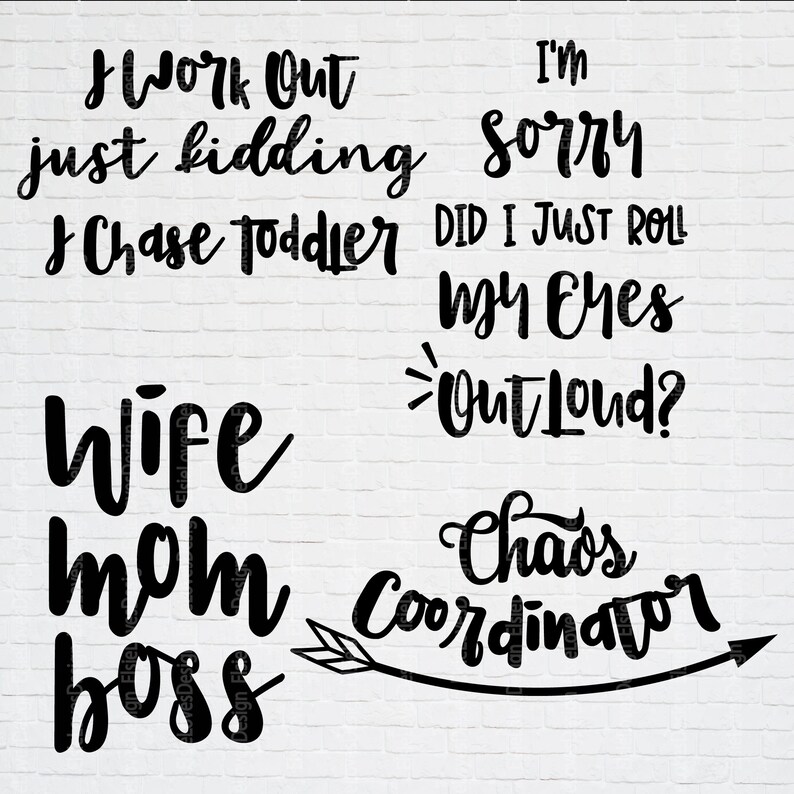 I Work Out
just kidding
I Chase Toddler
I'm
Sorry
DID I JUST ROLL
My Eyes
Out Loud?
Wife
mom
boss
Chaos
Coordinator